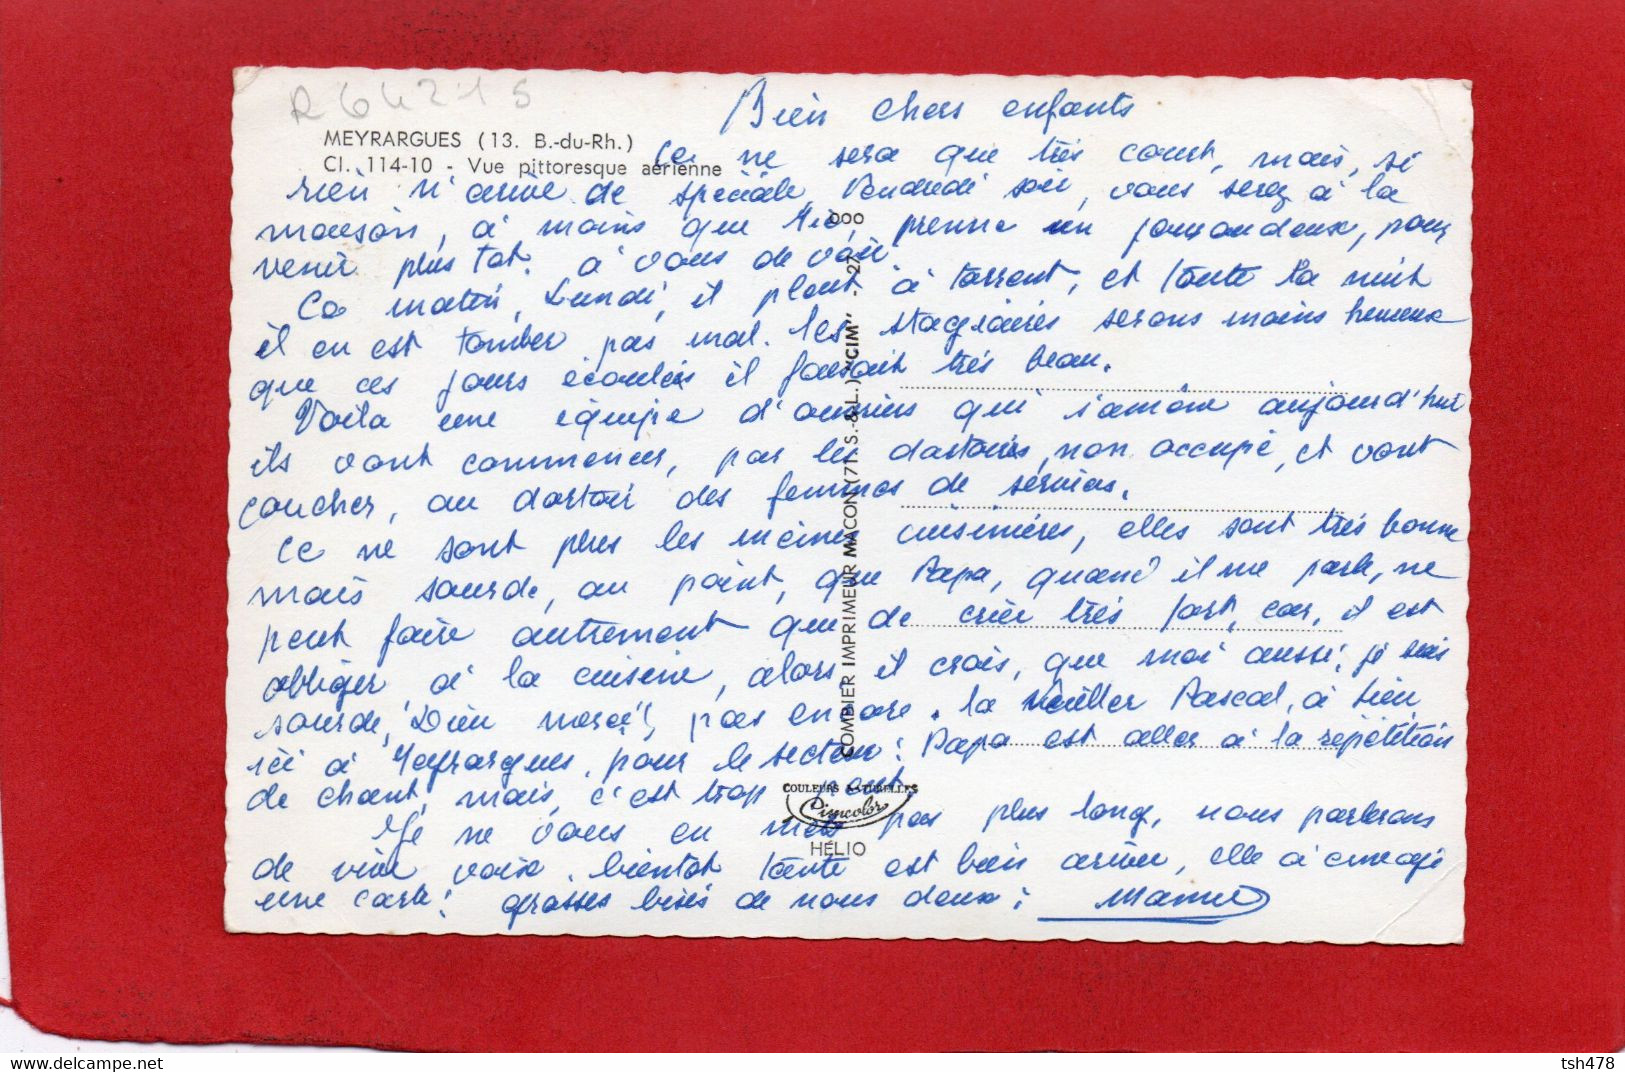 R 64215
MEYRARGUES (13. B.-du-Rh.)
Cl. 114-10 - Vue pittoresque aérienne
Bien chers enfants
Ce ne sera que très court, mais, si
rien n'arrive de spéciale, Vendredi soir, vous serez à la
maison, à moins que prenne un jour ou deux, pour
venir plus tot. à vous de voir
Ce matin, Lundi, il pleut à torrent, et toute la nuit
il en est tomber pas mal. les stagiaires serons moins heureux
que ces jours écoulés il faisait très beau.
Voila une équipe d'ouvriers qui s'amène aujourd'hui
ils vont commencer, par les dortoirs, non occupé, et vont
coucher, au dortoir des femmes de services.
Ce ne sont plus les mêmes cuisinières, elles sont très bonne
mais sourde, au point, que Papa, quand il me parle, ne
peut faire autrement que de crier très fort, car, il est
obliger à la cuisine, alors, il crois, que moi aussi, je suis
sourde, "Dieu merci", pas encore. la veiller Pascal, à lieu,
ici à Meyrargues, pour le secteur: Papa est aller à la répétition
de chant, mais, c'est trop
Je ne vous en mets pas plus long, nous parlerons
de vive voix. bientot tante est bien arriver, elle à envoyé
une carte: grosses bises de nous deux: Mamie
COMBIER IMPRIMEUR MACON (71. S.-&-L.) "CIM"
COULEURS NATURELLES
Cimcolor
HÉLIO
tsh478